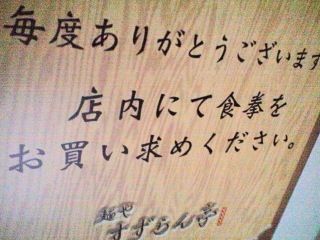 毎度ありがとうございます
店内にて食拳を
お買い求めください。
麺や
すずらん亭